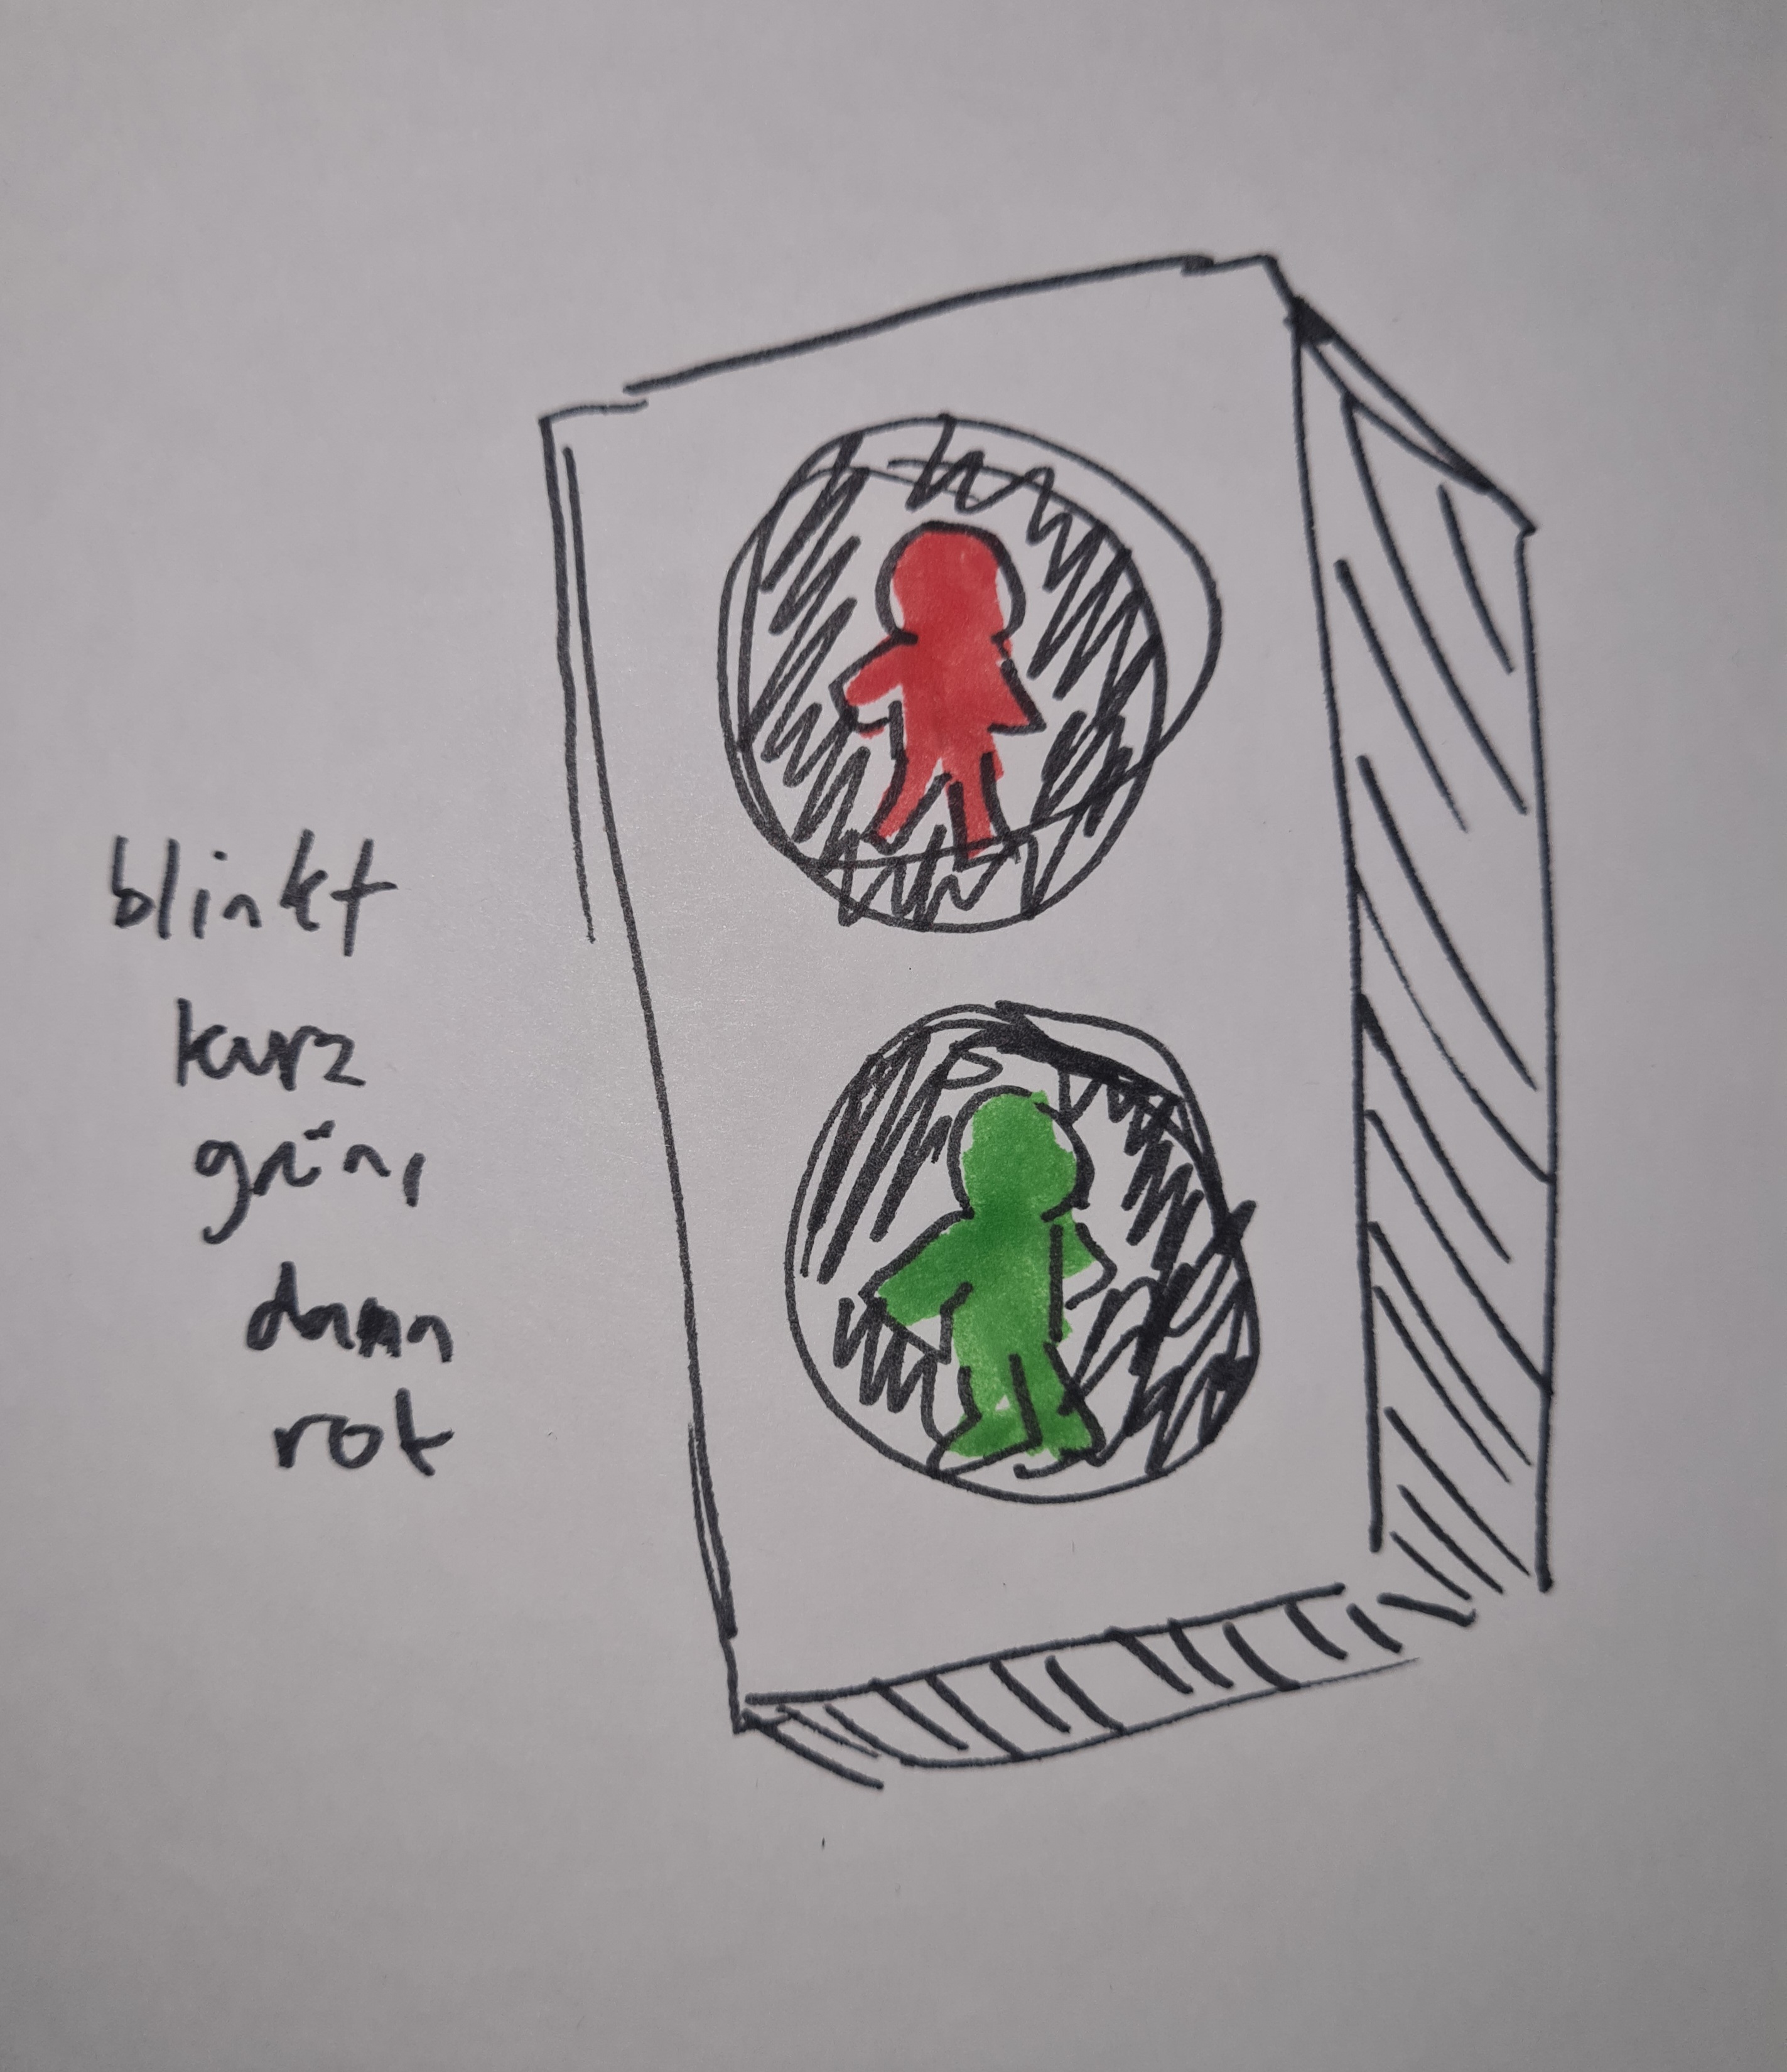 blinkt
kurz
grün,
dann
rot